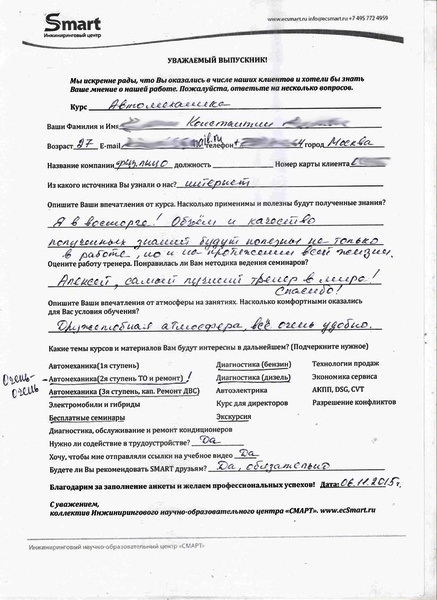 Smart
Инжиниринговый центр
www.ecsmart.ru info@ecsmart.ru +7 495 772 4959
УВАЖАЕМЫЙ ВЫПУСКНИК!
Мы искренне рады, что Вы оказались в числе наших клиентов и хотели бы знать
Ваше мнение о нашей работе. Пожалуйста, ответьте на несколько вопросов.
Курс Автомеханика
Ваши Фамилия и Имя Константин
Возраст 27 E-mail телефон город Москва
Название компании физ.лицо должность Номер карты клиента
Из какого источника Вы узнали о нас? интернет
Опишите Ваши впечатления от курса. Насколько применимы и полезны будут полученные знания?
Я в восторге! Объём и качество
полученных знаний будут полезны не только
в работе, но и на протяжении всей жизни.
Оцените работу тренера. Понравилась ли Вам методика ведения семинаров?
Алексей, самый лучший тренер в мире!
Спасибо!
Опишите Ваши впечатления от атмосферы на занятиях. Насколько комфортными оказались
для Вас условия обучения?
Дружелюбная атмосфера, всё очень удобно.
Какие темы курсов и материалов Вам будут интересны в дальнейшем? (Подчеркните нужное)
Автомеханика(1я ступень) Диагностика (бензин) Технологии продаж
Очень-очень Автомеханика(2я ступень ТО и ремонт)! Диагностика (дизель) Экономика сервиса
Автомеханика (3я ступень, кап. Ремонт ДВС) Автоэлектрика АКПП, DSG, CVT
Электромобили и гибриды Курс для директоров Разрешение конфликтов
Бесплатные семинары Экскурсия
Диагностика, обслуживание и ремонт кондиционеров
Нужно ли содействие в трудоустройстве? Да
Хочу, чтобы мне отправляли ссылки на учебное видео Да
Будете ли Вы рекомендовать SMART друзьям? Да, обязательно
Благодарим за заполнение анкеты и желаем профессиональных успехов! Дата: 06.11.2015г.
С уважением,
коллектив Инжинирингового научно-образовательного центра «СМАРТ». www.ecSmart.ru
Инжиниринговый научно-образовательный центр «СМАРТ»